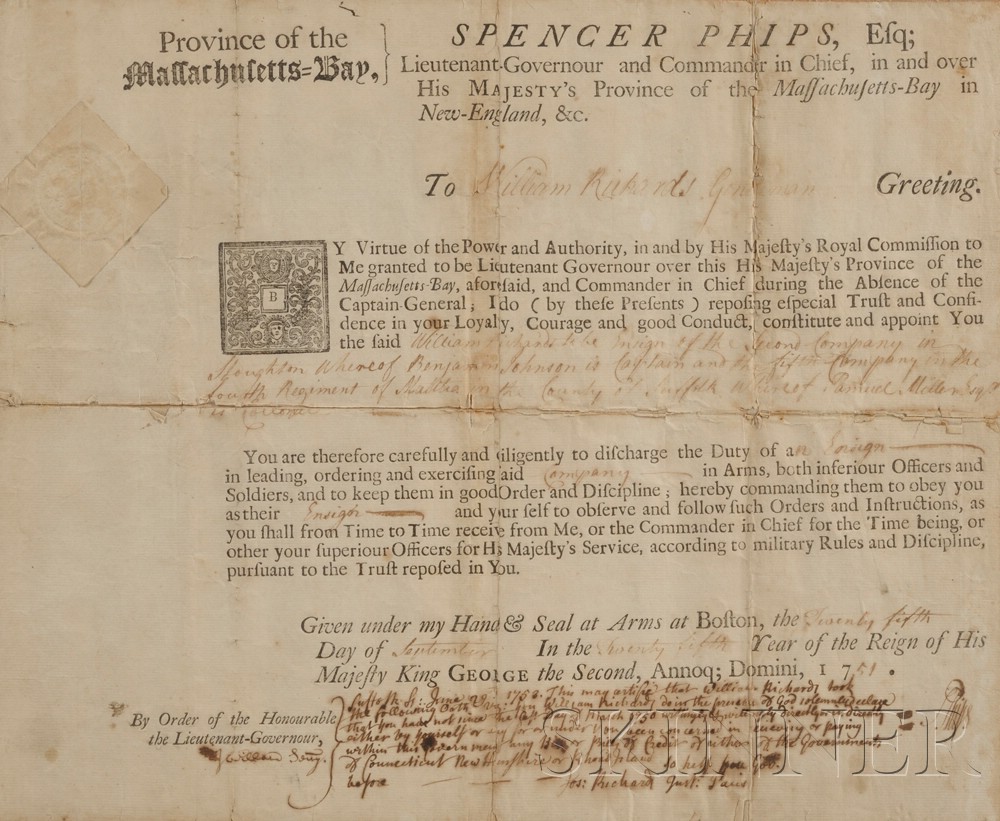 Province of the
Maſſachuſetts=Bay,
SPENCER PHIPS, Eſq;
Lieutenant-Governour and Commander in Chief, in and over
His MAJESTY's Province of the Maſſachuſetts-Bay in
New-England, &c.
To William Richards Gentleman Greeting.
BY Virtue of the Power and Authority, in and by His Majeſty's Royal Commiſſion to
Me granted to be Lieutenant Governour over this His Majeſty's Province of the
Maſſachuſetts-Bay, aforeſaid, and Commander in Chief during the Abſence of the
Captain-General; I do (by theſe Preſents) repoſing eſpecial Truſt and Confi-
dence in your Loyalty, Courage and good Conduct, conſtitute and appoint You
the ſaid William Richards to be Ensign of the Second Company in
Stoughton Whereof Benjamin Johnson is Captain and the fifth Company in the
fourth Regiment of Militia in the County of Suffolk Whereof Samuel Miller Esqr
is Collonel
You are therefore carefully and diligently to diſcharge the Duty of an Ensign
in leading, ordering and exerciſing ſaid Company in Arms, both inferiour Officers and
Soldiers, and to keep them in good Order and Diſcipline; hereby commanding them to obey you
as their Ensign and your ſelf to obſerve and follow ſuch Orders and Inſtructions, as
you ſhall from Time to Time receive from Me, or the Commander in Chief for the Time being, or
other your ſuperiour Officers for His Majeſty's Service, according to military Rules and Diſcipline,
purſuant to the Truſt repoſed in You.
Given under my Hand & Seal at Arms at Boſton, the Twenty fifth
Day of September In the Twenty fifth Year of the Reign of His
Majeſty King GEORGE the Second, Annoq; Domini, 1751.
By Order of the Honourable
the Lieutenant-Governour,
Suffolk Ss. June 1752. This may certifie that William Richards took
the following Oath William Richards do in the presence of God solemn declare
that you have not since the last of March 1750
either by yourself or any for or under you been concerned in receiving or paying
within this Government any Bill or Bills of Credit of either of the Governments
of Connecticut New Hampshire or Rhode Island So help you God.
before Jos: Richard Just. Pacis
SKINNER